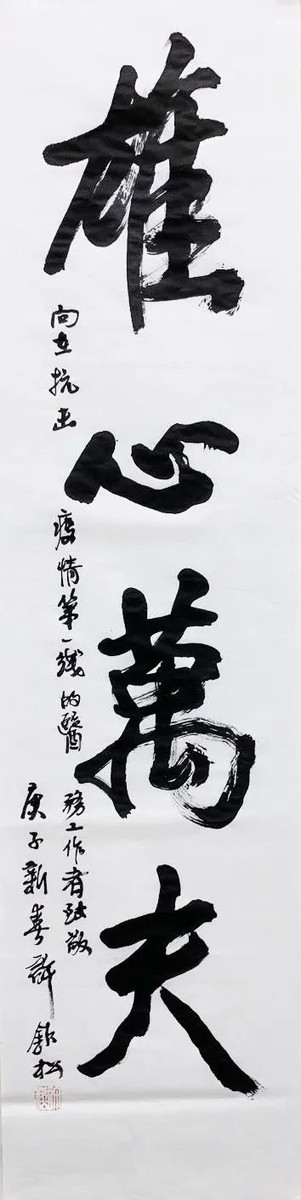 雄心萬夫
向在抗击疫情第一线的醫務工作者致敬
庚子新春許欽松